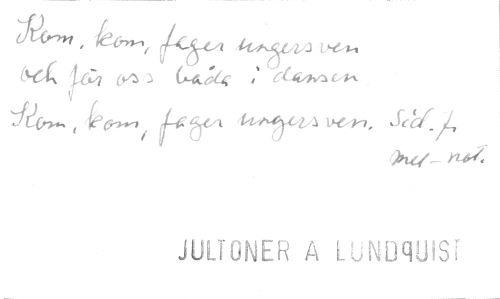 Kom, kom, fager ungersven
och för oss båda i dansen
Kom, kom, fager ungersven. Sid. 7.
mel-not.
JULTONER A LUNDQUIST